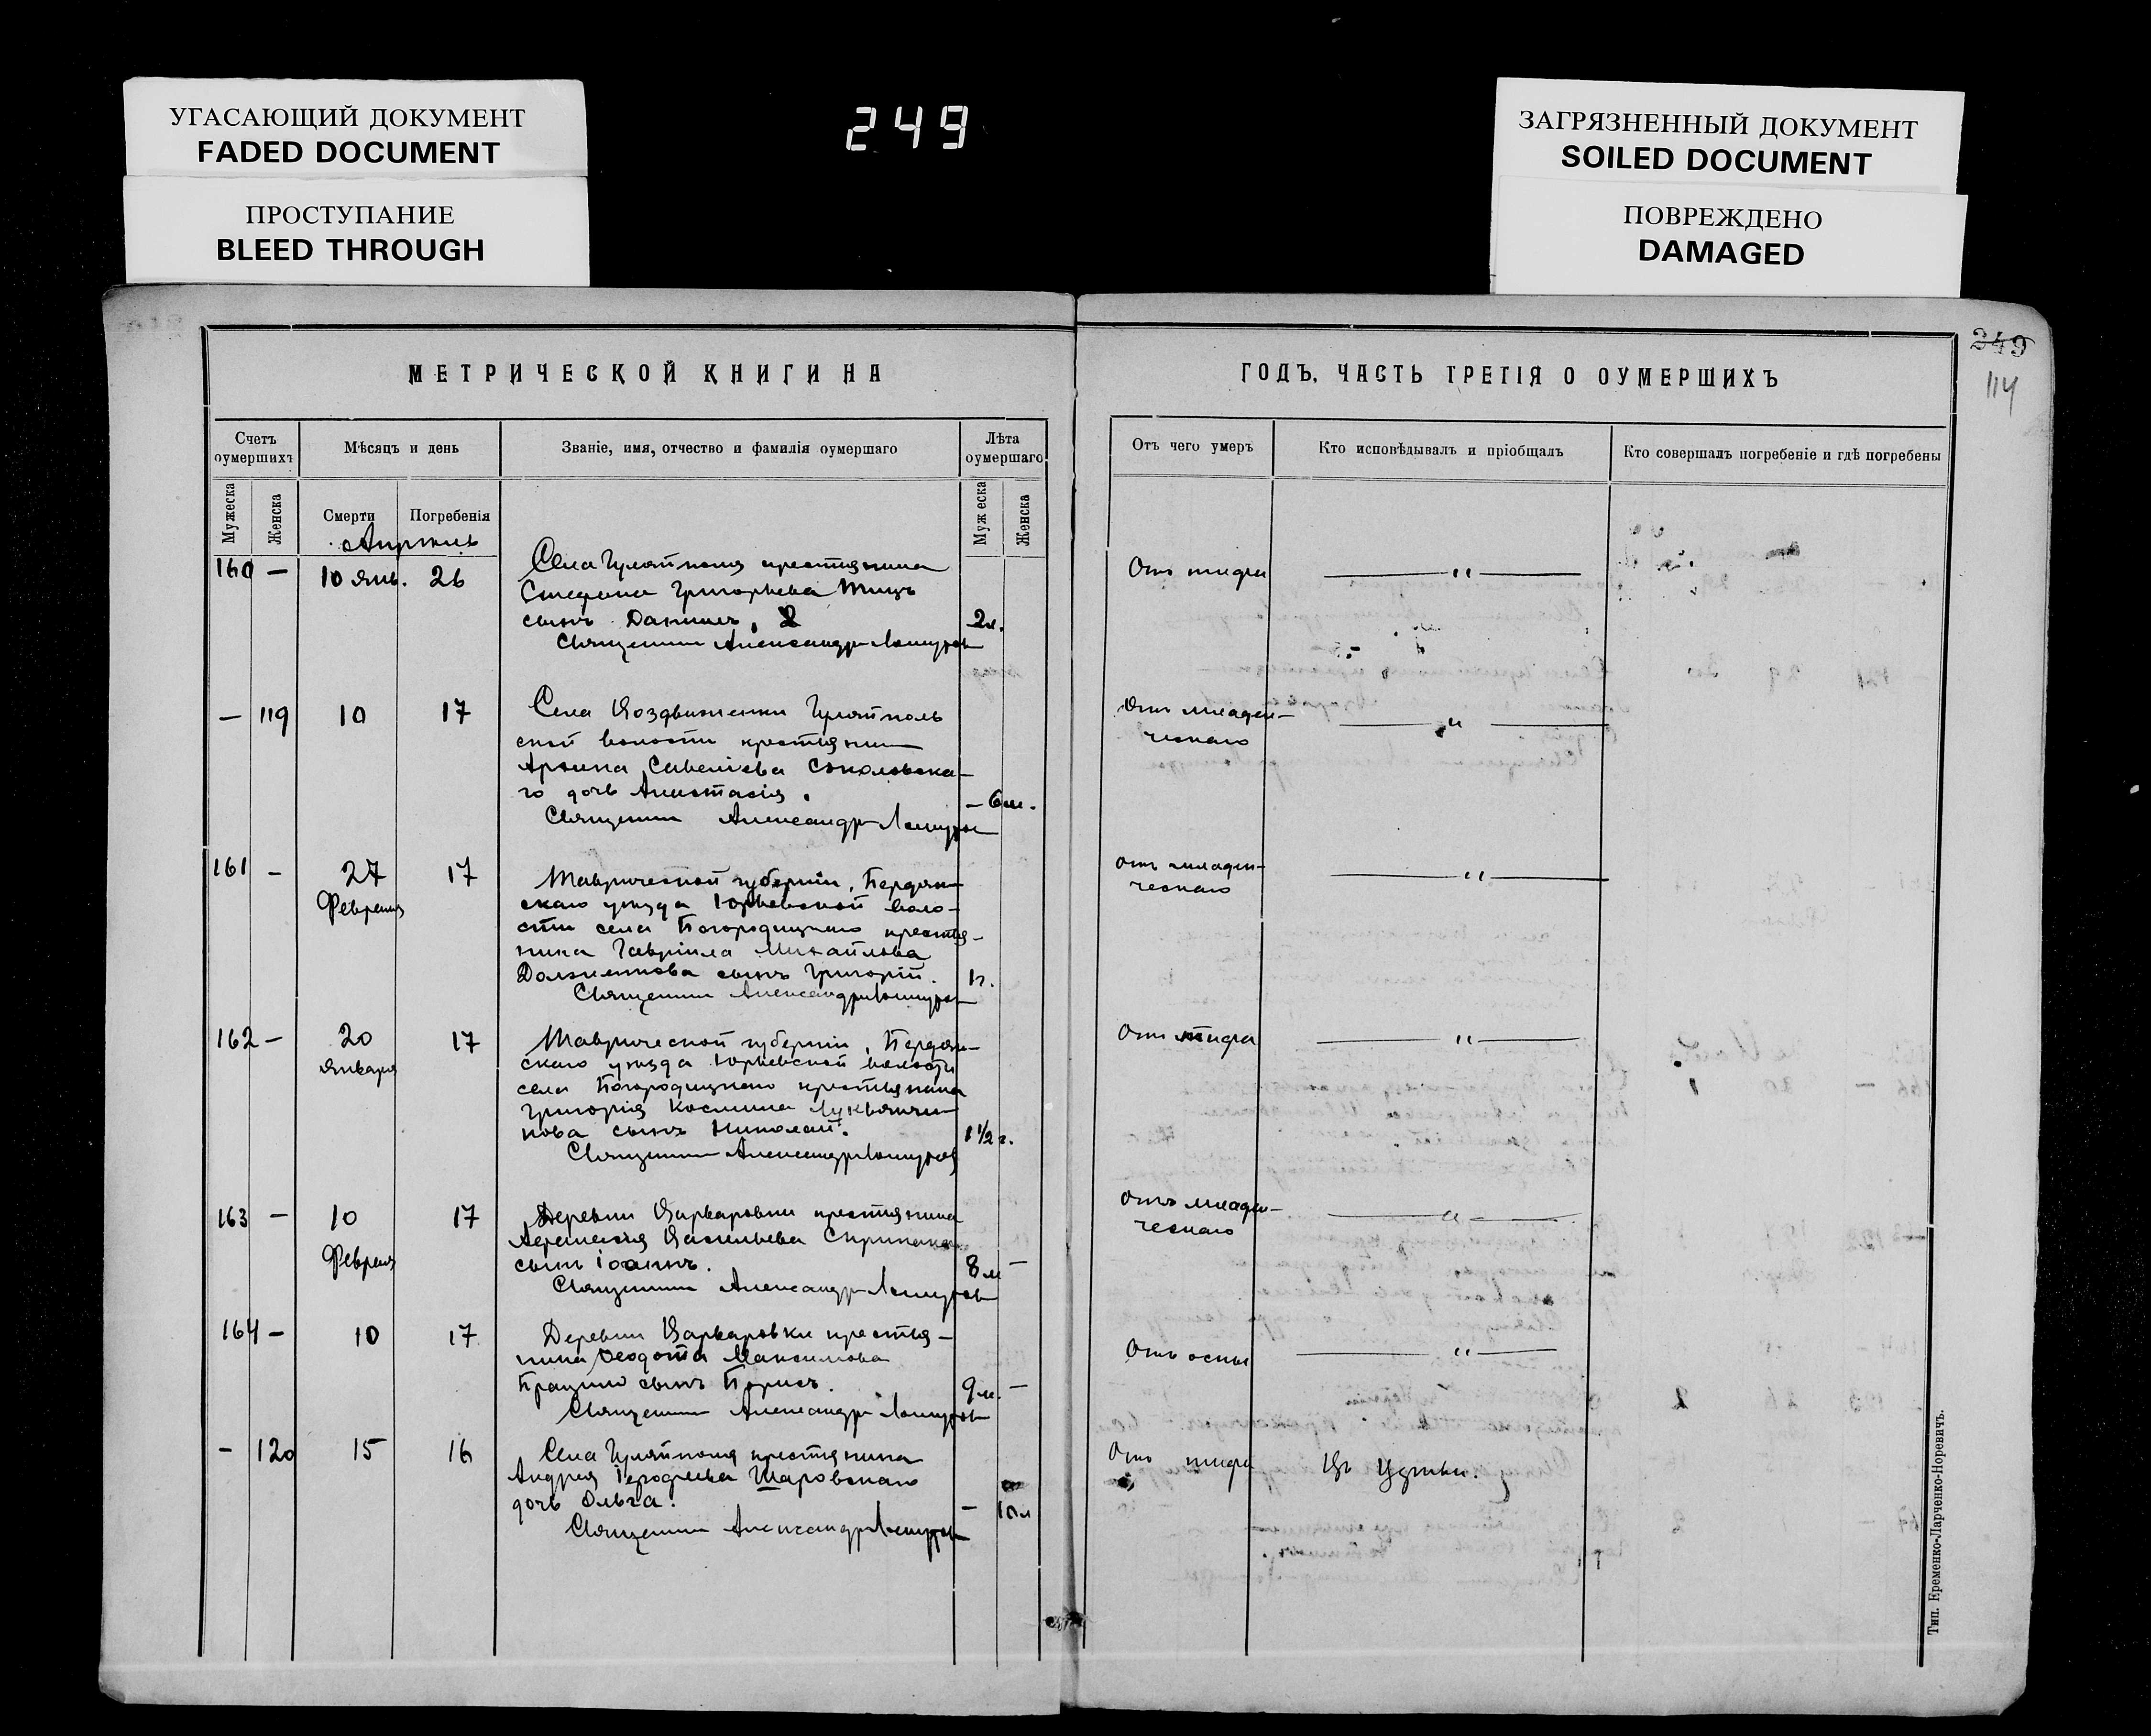 УГАСАЮЩИЙ ДОКУМЕНТ
FADED DOCUMENT
ПРОСТУПАНИЕ
BLEED THROUGH
249
ЗАГРЯЗНЕННЫЙ ДОКУМЕНТ
SOILED DOCUMENT
ПОВРЕЖДЕНО
DAMAGED
249
114
МЕТРИЧЕСКОЙ КНИГИ НА
ГОДЪ, ЧАСТЬ ТРЕТІЯ О ОУМЕРШИХЪ
Счетъ оумершихъ
Мѣсяцъ и день
Званіе, имя, отчество и фамилія оумершаго
Лѣта оумершаго
Отъ чего умеръ
Кто исповѣдывалъ и пріобщалъ
Кто совершалъ погребеніе и гдѣ погребены
Мужеска
Женска
Смерти
Погребенія
Мужеска
Женска
Апрѣль
160 — 10 янв. 26
Села Гуляйполя крестьянина
Стефана Григорьева
сынъ Даніилъ. 2 л.
Священникъ Александръ
Отъ тифа — " —
— 119 10 17
Села Воздвиженки Гуляйполь
ской волости крестьянина
Савеліева Соколовска-
го дочь Анастасія. — 6 м.
Священникъ Александръ
Отъ младен-
ческаго — " —
161 — 27 Февраля 17
Таврической губерніи, Бердян-
скаго уѣзда Юрьевской воло-
сти села Богородицкаго крестья-
нина Гавріила Михайлова
Должикова сынъ Григорій. 1 г.
Священникъ Александръ
Отъ младен-
ческаго — " —
162 — 20 января 17
Таврической губерніи, Бердян-
скаго уѣзда Юрьевской волости
села Богородицкаго крестьянина
Григорія Космина
нова сынъ Николай. 1 1/2 г.
Священникъ Александръ
Отъ тифа — " —
163 — 10 Февраля 17
Деревни Варваровки крестьянина
Васильева
сынъ Іоаннъ. 8 м —
Священникъ Александръ
Отъ младен-
ческаго — " —
164 — 10 17
Деревни Варваровки крестья-
нина Ѳеодота Максимова
сынъ Борисъ. 9 м. —
Священникъ Александръ
Отъ оспы — " —
— 120 15 16
Села Гуляйполя крестьянина
Андрея Шаровскаго
дочь Ольга. — 10 л
Священникъ Александръ
Отъ тифа
Тип. Еременко-Ларченко-Норевичъ.